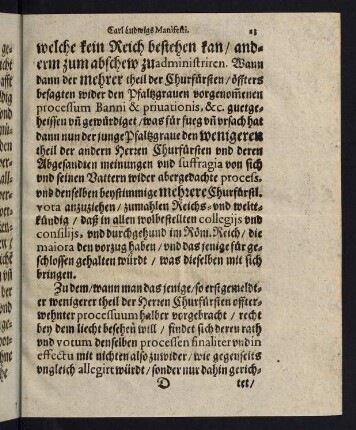 Carl Ludwigs Manifest.
13
welche kein Reich bestehen kan / and-
ern zum abschew zu administriren. Wann
dann der mehrer theil der Churfürsten / öffters
besagten wider den Pfaltzgrauen vorgenom̃enen
processum Banni & priuationis, &c. guetge-
heissen vn̄ gewürdiget / was für fueg vn̄ vrsach hat
dann nun der junge Pfaltzgraue den wenigeren
theil der andern Herren Churfürsten vnd deren
Abgesandten meinungen vnd suffragia von sich
vnd seinen Vattern wider abergedachte process.
vnd denselben beystimmige mehrere Churfürstl.
vota anzuziehen / zumahlen Reichs- vnd weltt-
kündig / daß in allen wolbestellten collegijs vnd
consilijs, vnd durchgehend im Röm. Reich / die
maiora den vorzug haben / vnd das jenige für ge-
schlossen gehalten würdt / was dieselben mit sich
bringen.
Zu dem / wann man das jenige / so erstgemeldt-
er wenigerer theil der Herren Churfürsten offter-
wehnter processuum halber vorgebracht / recht
bey dem liecht besehen̄ will / findet sich deren rath
vnd votum denselben processen finaliter vnd in
effectu mit nichten also zuwider / wie gegenseits
vngleich allegirt würdt / sonder nur dahin gerich-
D
tet /